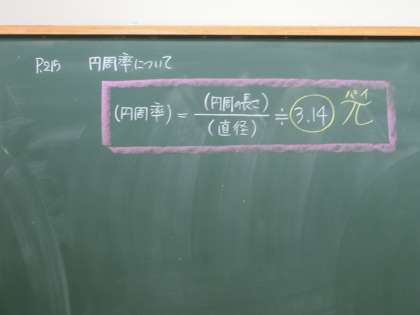 P.215 円周率について
(円周率) = (円周の長さ) / (直径) ≒ 3.14 π
パイ